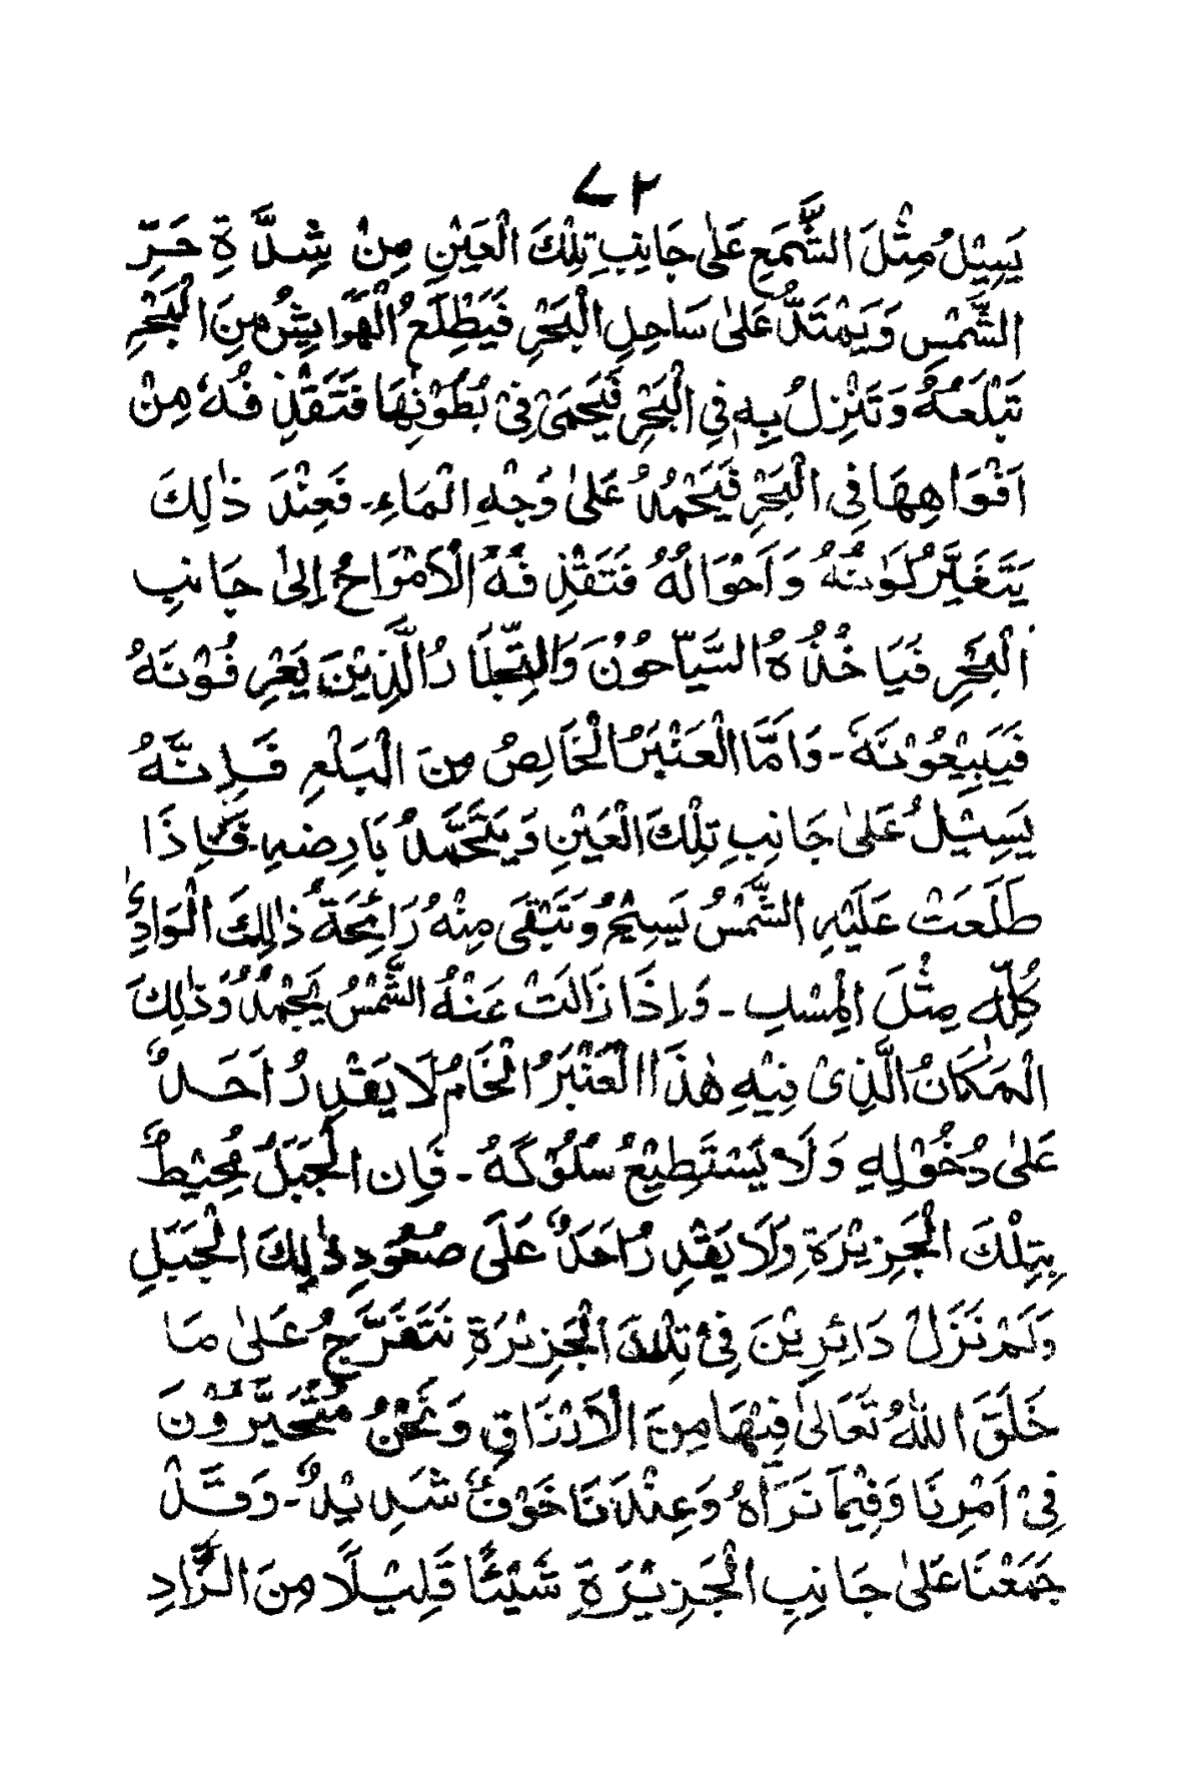 ۷۲
يَسِيْلُ مِثْلَ الشَّمَعِ عَلٰى جَانِبِ تِلْكَ الْعَيْنِ مِنْ شِدَّةِ حَرِّ
الشَّمْسِ وَيَمْتَدُّ عَلٰى سَاحِلِ الْبَحْرِ فَيَطْلَعُ الْهَوَايِشُ مِنَ الْبَحْرِ
تَبْلَعُهُ وَتَنْزِلُ بِهٖ فِي الْبَحْرِ فَيَحْمٰى فِيْ بُطُوْنِهَا فَتَقْذِفُهٗ مِنْ
اَفْوَاهِهَا فِي الْبَحْرِ فَيَجْمُدُ عَلٰى وَجْهِ الْمَاءِ۔ فَعِنْدَ ذٰلِكَ
يَتَغَيَّرُ لَوْنُهُ وَاَحْوَالُهُ فَتَقْذِفُهُ الْاَمْوَاجُ اِلىٰ جَانِبِ
الْبَحْرِ فَيَاخُذُهُ السَّيَّاحُوْنَ وَالتُّجَّارُ الَّذِيْنَ يَعْرِفُوْنَهُ
فَيَبِيْعُوْنَهُ۔ وَاَمَّا الْعَنْبَرُ الْخَالِصُ مِنَ الْبَلْعِ فَاِنَّهُ
يَسِيْلُ عَلىٰ جَانِبِ تِلْكَ الْعَيْنِ وَيَتَجَمَّدُ بَارِضِهٖ۔ فَاِذَا
طَلَعَتْ عَلَيْهِ الشَّمْسُ يَسِيْحُ وَتَبْقَى مِنْهُ رَائِحَةُ ذٰلِكَ الْوَادِيْ
كُلِّهٖ مِثْلَ الْمِسْكِ۔ وَاِذَا زَالَتْ عَنْهُ الشَّمْسُ يَجْمُدُ وَذٰلِكَ
الْمَكَانُ الَّذِىْ فِيْهِ هٰذَا الْعَنْبَرُ الْخَامُ لَا يَقْدِرُ اَحَدٌ
عَلٰى دُخُوْلِهٖ وَلَا يَسْتَطِيْعُ سُلُوْكَهُ۔ فَاِن الْجَبَلَ مُحِيْطٌ
بِتِلْكَ الْجَزِيْرَةِ وَلَا يَقْدِرُ اَحَدٌ عَلَى صُعُوْدِ ذٰلِكَ الْجَبَلِ
وَلَمْ نَزَلْ دَائِرِيْنَ فِىْ تِلْكَ الْجَزِيْرَةِ نَتَفَرَّجُ عَلٰى مَا
خَلَقَ اللهُ تَعَالىٰ فِيْهَا مِنَ الْاَرْزَاقِ وَنَحْنُ مُتَحَيِّرُوْنَ
فِىْ اَمْرِنَا وَفِيْمَا نَرَاهُ وَعِنْدَنَا خَوْفٌ شَدِيْدٌ۔ وَقَدْ
جَمَعْنَا عَلىٰ جَانِبِ الْجَزِيْرَةِ شَيْئًا قَلِيْلًا مِنَ الزَّادِ